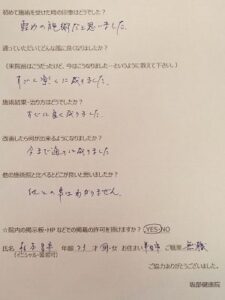 初めて施術を受けた時の印象はどうでした？
軽めの施術だと思いました。
通っていただいてどんな風に良くなりましたか？
（来院前はこうだったけど、今はこうなりました…というように教えて下さい。）
すごく楽に成りました。
施術結果・治り方はどうでしたか？
すごく良く成りました。
改善したら何が出来るようになりましたか？
今まで通りに成りました。
他の施術院と比べるとどこが良いと思いましたか？
他との事はわかりません。
☆院内の掲示板・HPなどでの掲載の許可を頂けますか？ YES・NO
氏名 年齢 才 男・女 お住まい ご職業 無職
（イニシャル・匿名可）
ご協力ありがとうございました。
坂部健康院